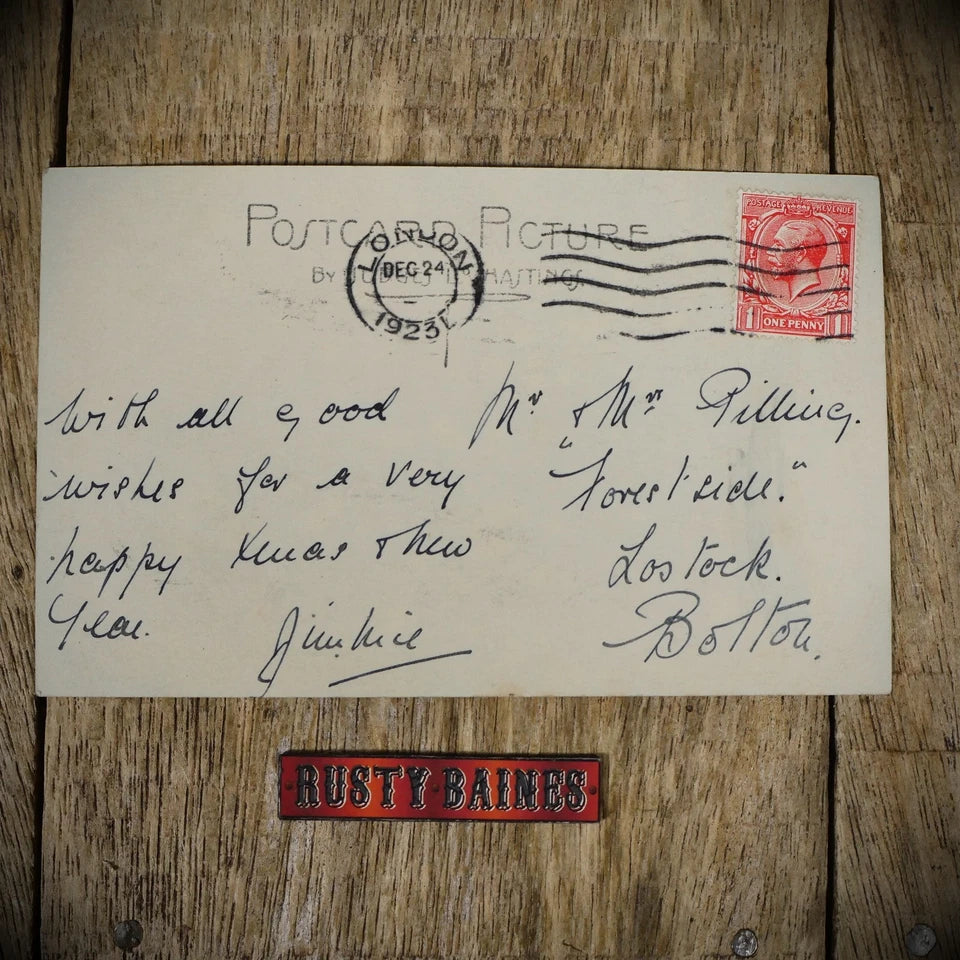 POSTCARD PICTURE
BY JUDGES LTD HASTINGS.
LONDON
DEC 24
1923
POSTAGE REVENUE
1 ONE PENNY 1
With all good
wishes for a very
happy Xmas & New
Year.
Jimmie
Mr & Mrs Pilling.
"Forest side."
Lostock.
Bolton.
RUSTY BAINES